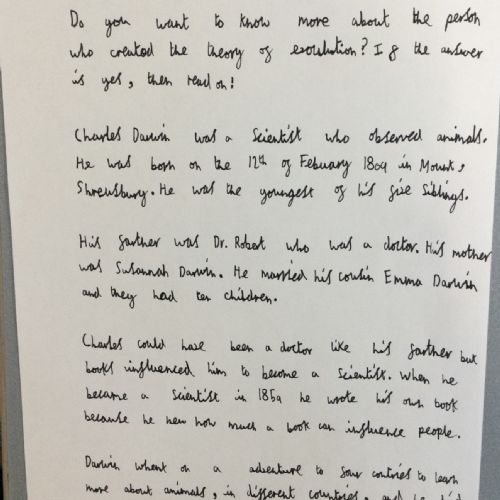 Do you want to know more about the person
who created the theory of evoulution? If the answer
is yes, then read on!
Charles Darwin was a Scientist who observed animals.
He was born on the 12th of Febuary 1809 in Mount,
Shrewsbury. He was the youngest of his five siblings.
His farther was Dr. Robert who was a doctor. His mother
was Susannah Darwin. He married his cousin Emma Darwin
and they had ten children.
Charles could have been a doctor like his farther but
books influenced him to become a Scientist. When he
became a Scientist in 1859 he wrote his own book
because he new how much a book can influence people.
Darwin whent on a adventure to contries to learn
more about animals, in different countries, and he